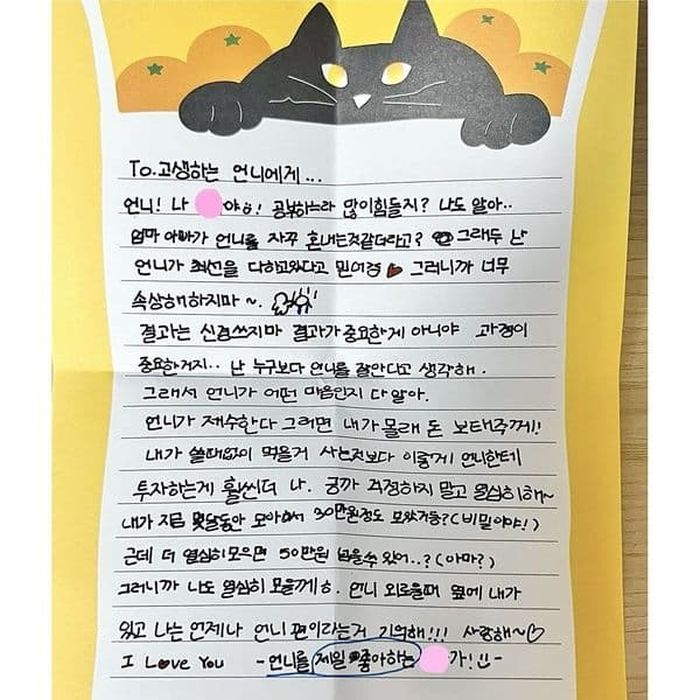 To.고생하는 언니에게...
언니! 나 야ㅎ! 공부하느라 많이힘들지? 나도 알아..
엄마 아빠가 언니를 자꾸 혼내는것같더라고? 그래두 난
언니가 최선을 다하고있다고 믿어정 그러니까 너무
속상해하지마~.
결과는 신경쓰지마 결과가 중요한게 아니야 과정이
중요한거지.. 난 누구보다 언니를 잘안다고 생각해.
그래서 언니가 어떤 마음인지 다 알아.
언니가 재수한다 그러면 내가 몰래 돈 보태주께!
내가 쓸때없이 먹을거 사는것보다 이렇게 언니한테
투자하는게 훨씬더 나. 긍까 걱정하지 말고 열심히해~
내가 지금 몇달동안 모아놔서 30만원정도 모았거등?(비밀이야!)
근데 더 열심히모으면 50만원 넘을수 있어..?(아마?)
그러니까 나도 열심히 모을께ㅎ. 언니 외로울때 옆에 내가
있고 나는 언제나 언니 편이라는거 기억해!!! 사랑해~♡
I Love You -언니를 제일 좋아하는 가!!-